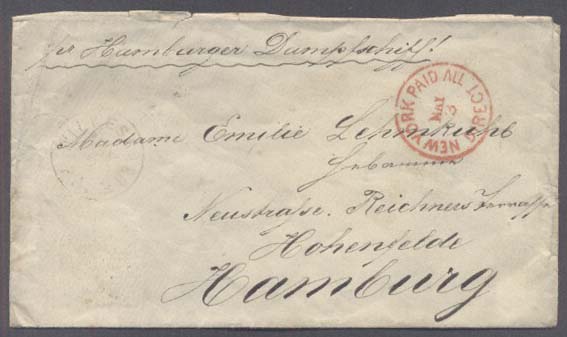 pr Hamburger Dampfschiff!
NEW YORK PAID ALL DIRECT
MAY
3
Madame Emilie Lehmkuhl
Hebamme
Neustraße. Reichners Terrasse
Hohenfelde
Hamburg